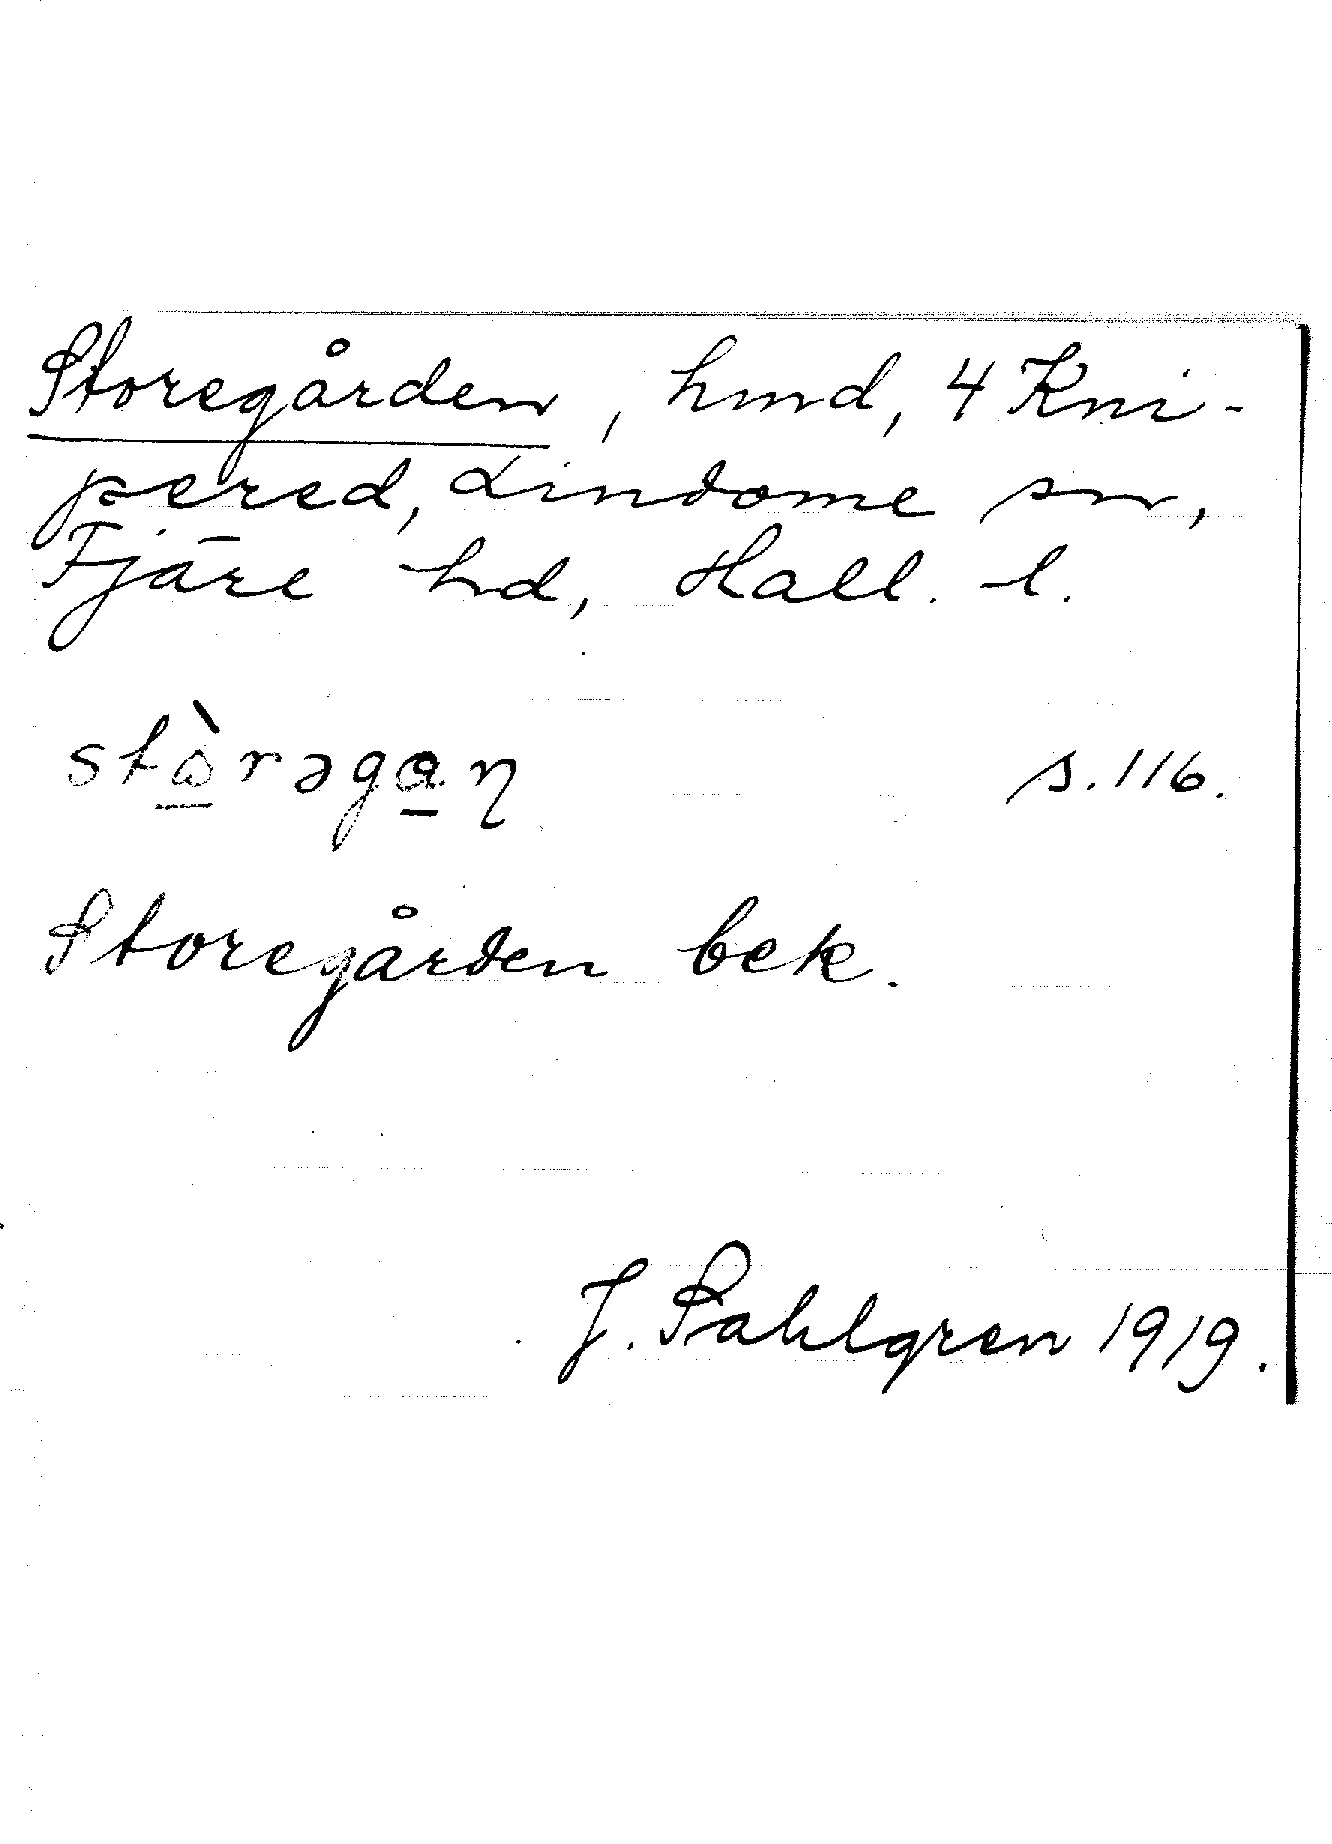 Storegården, hmd, 4 Kni-
pered, Lindome sn,
Fjäre hd, Hall. l.
stὼrəgąη s. 116.
Storegården bek.
J. Sahlgren 1919.